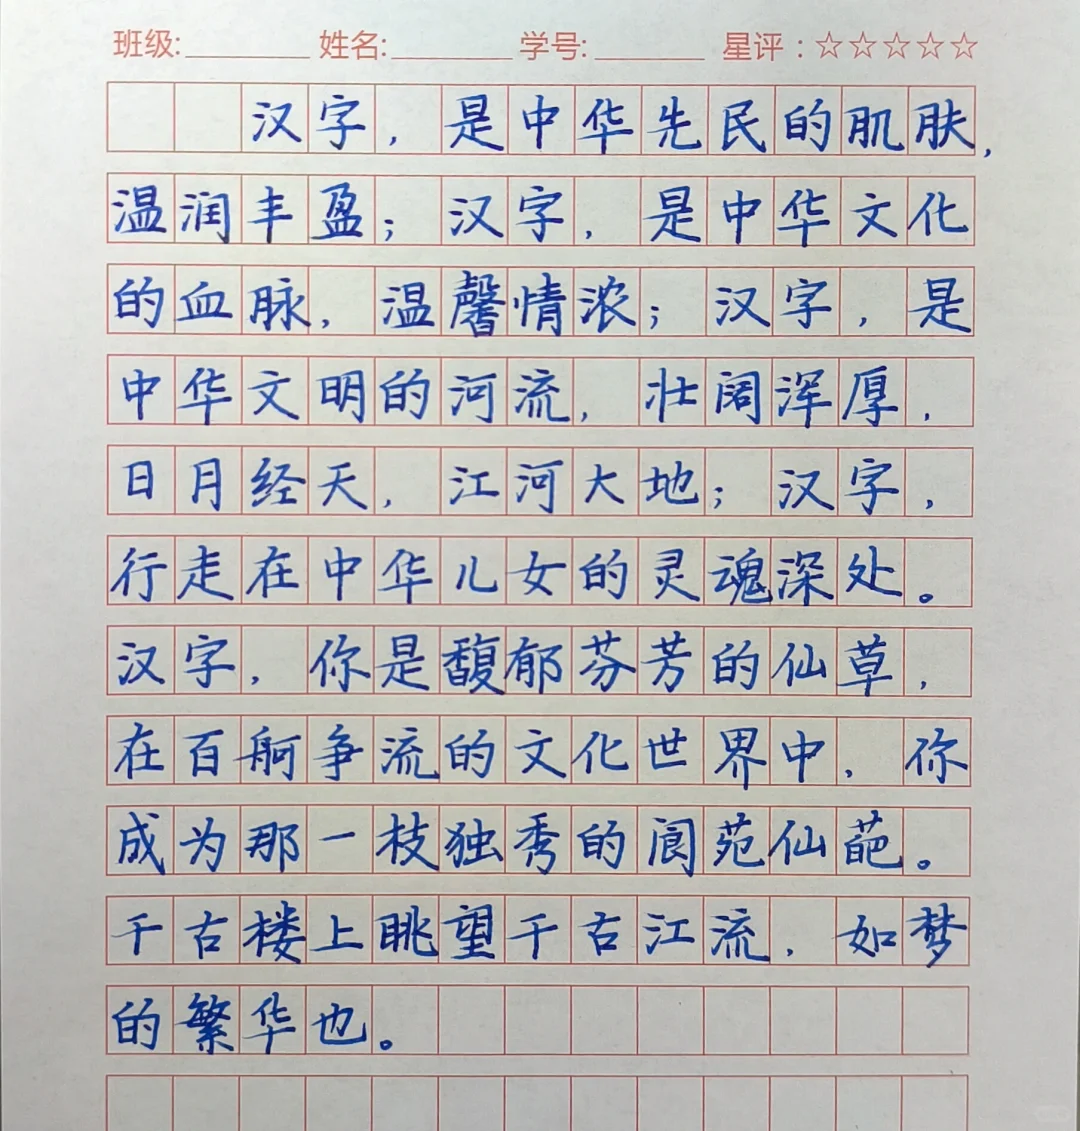 班级: 姓名: 学号: 星评:☆☆☆☆☆
汉字,是中华先民的肌肤,
温润丰盈;汉字,是中华文化
的血脉,温馨情浓;汉字,是
中华文明的河流,壮阔浑厚,
日月经天,江河大地;汉字,
行走在中华儿女的灵魂深处。
汉字,你是馥郁芬芳的仙草,
在百舸争流的文化世界中,你
成为那一枝独秀的阆苑仙葩。
千古楼上眺望千古江流,如梦
的繁华也。